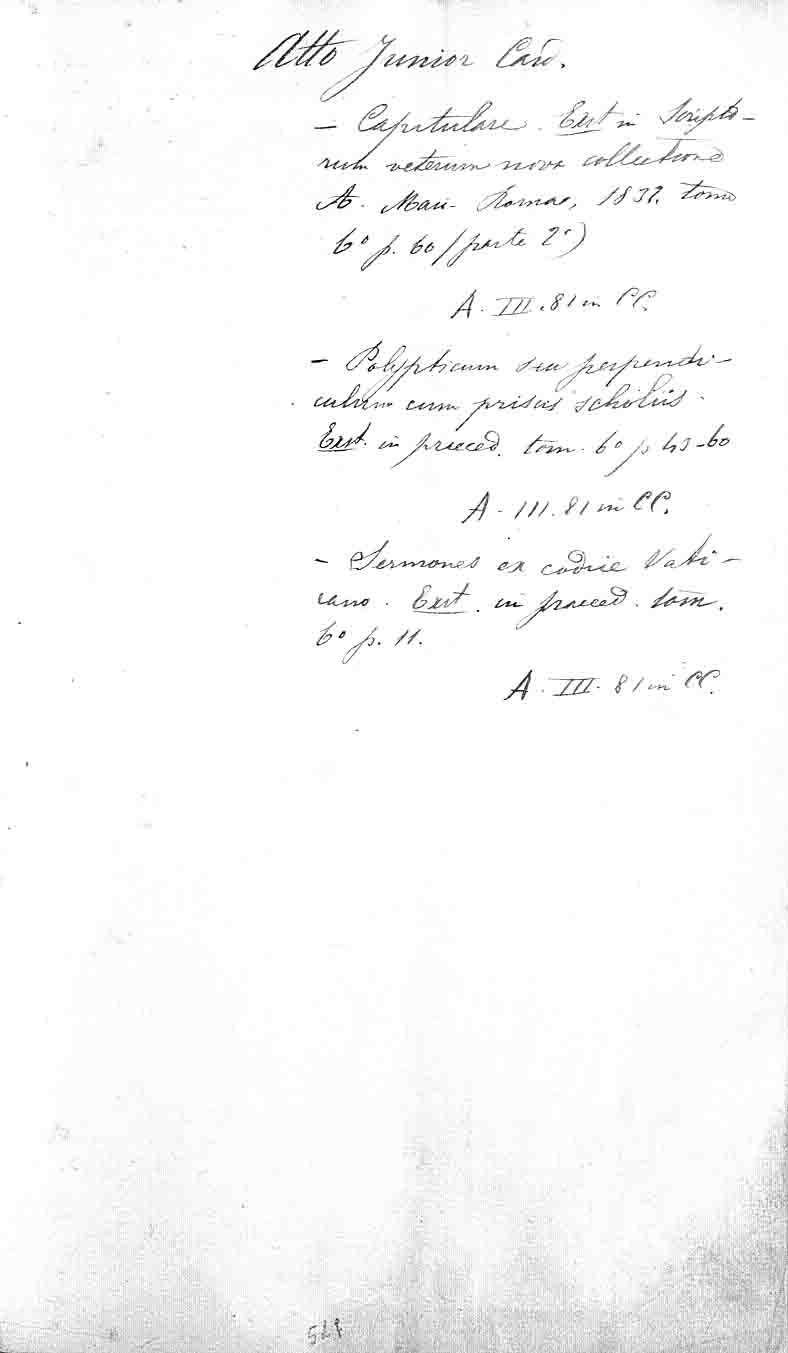 Atto Junior Card.
- Capitulare. Exst in Scripto-
rum veterum nova collectione
A. Maii - Romae, 1832. tomo
6º p. 60 (parte 2ª)
A. III. 81 in CC.
- Polypticum seu perpendi-
culum cum priscis scholiis.
Exst. in praeced. tom. 6º p 43-60
A. III. 81 in CC.
- Sermones ex codice Vati-
cano. Exst. in praeced. tom.
6º p. 11.
A. III. 81 in CC.